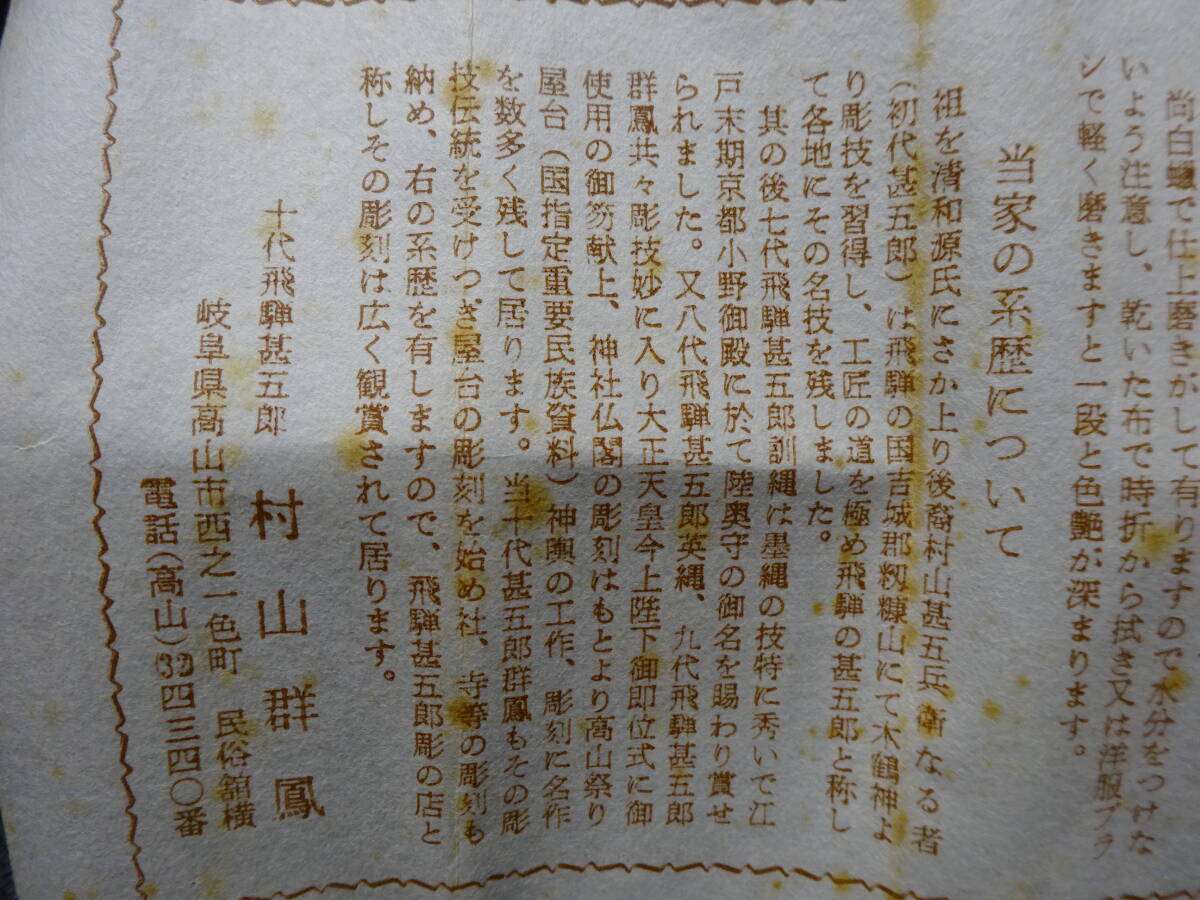 尚白蠟で仕上磨きがして有りますので水分をつけな
いよう注意し、乾いた布で時折から拭き又は洋服ブラ
シで軽く磨きますと一段と色艶が深まります。
当家の系歴について
祖を清和源氏にさか上り後裔村山甚五兵衛なる者
(初代甚五郎)は飛騨の国吉城郡籾糠山にて木鶴神よ
り彫技を習得し、工匠の道を極め飛騨の甚五郎と称し
て各地にその名技を残しました。
其の後七代飛騨甚五郎訓縄は墨縄の技特に秀いで江
戸末期京都小野御殿に於て陸奥守の御名を賜わり賞せ
られました。又八代飛騨甚五郎英縄、九代飛騨甚五郎
群鳳共々彫技妙に入り大正天皇今上陛下御即位式に御
使用の御笏献上、神社仏閣の彫刻はもとより高山祭り
屋台(国指定重要民族資料)神輿の工作、彫刻に名作
を数多く残して居ります。当十代甚五郎群鳳もその彫
技伝統を受けつぎ屋台の彫刻を始め社、寺等の彫刻も
納め、右の系歴を有しますので、飛騨甚五郎彫の店と
称しその彫刻は広く観賞されて居ります。
十代飛騨甚五郎 村山群鳳
岐阜県高山市西之一色町 民俗館横
電話(高山)32四三四〇番